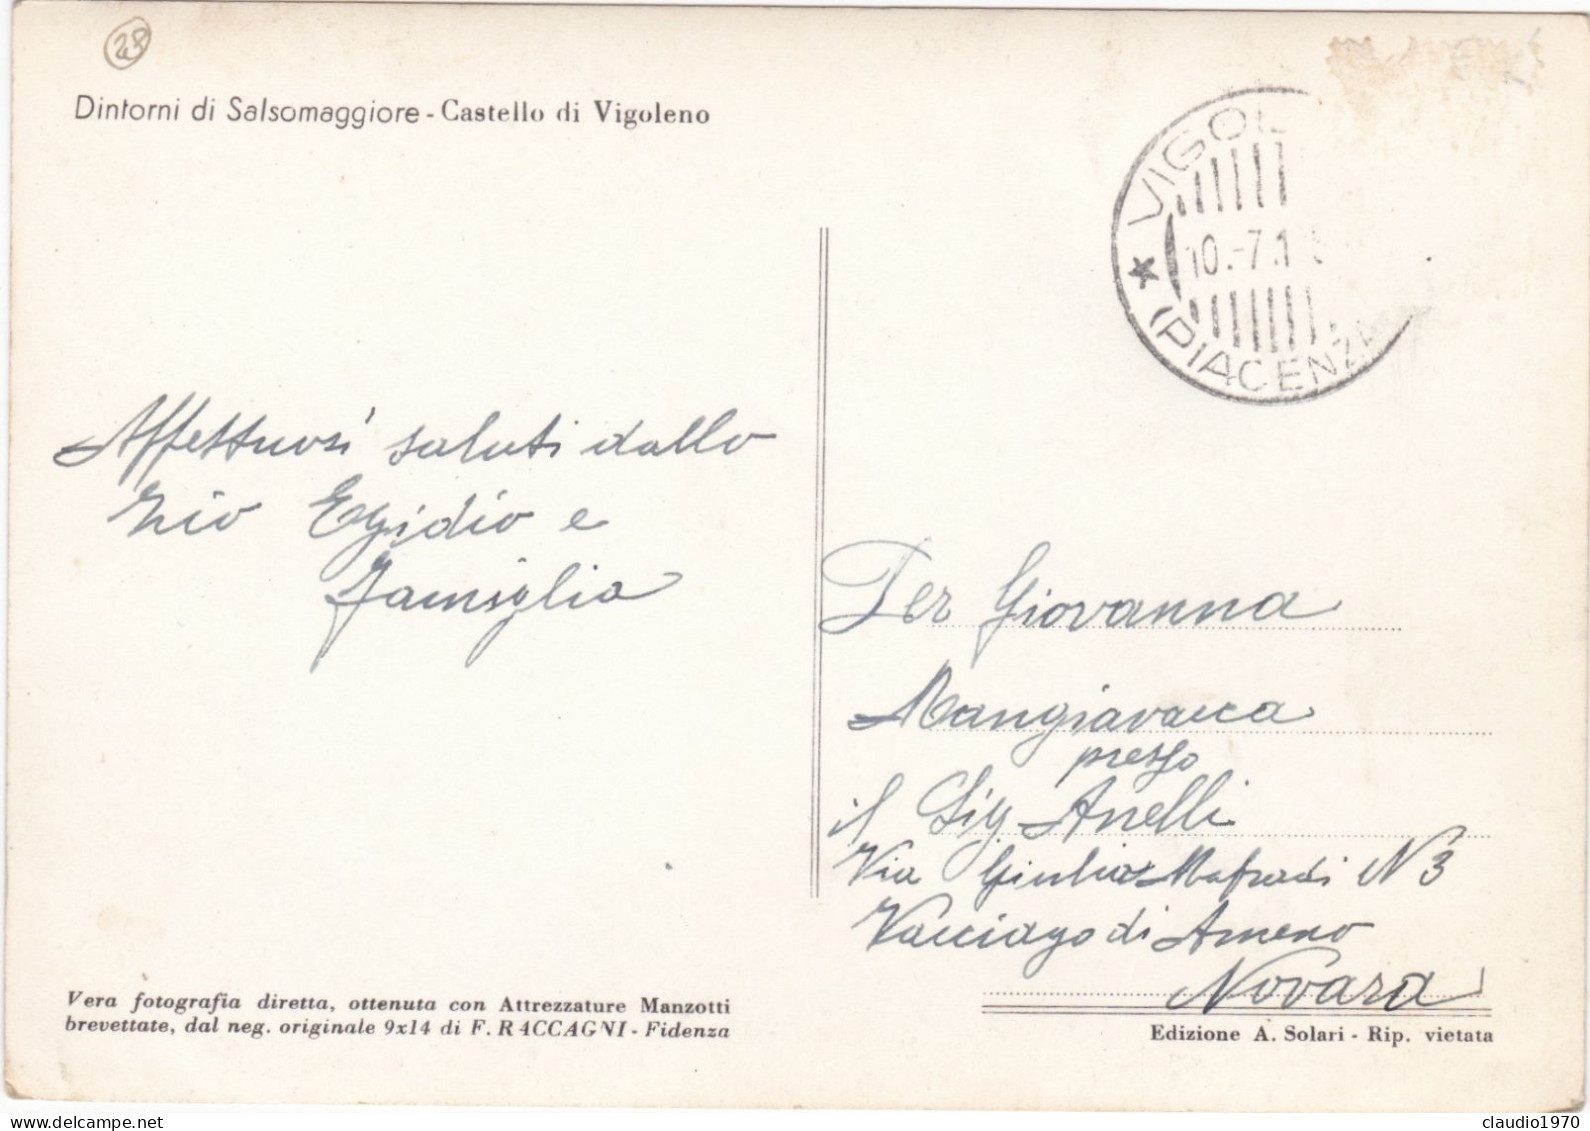 28
Dintorni di Salsomaggiore - Castello di Vigoleno
VIGOL
10.-7.1
★ (PIACENZA
Affettuosi saluti dallo
zio Egidio e
famiglia
Per Giovanna
Mangiavacca
presso
il Sig Anelli
Via Giulia N 3
Vacciago di Ameno
Novara
Vera fotografia diretta, ottenuta con Attrezzature Manzotti
brevettate, dal neg. originale 9x14 di F. RACCAGNI - Fidenza
Edizione A. Solari - Rip. vietata
claudio1970